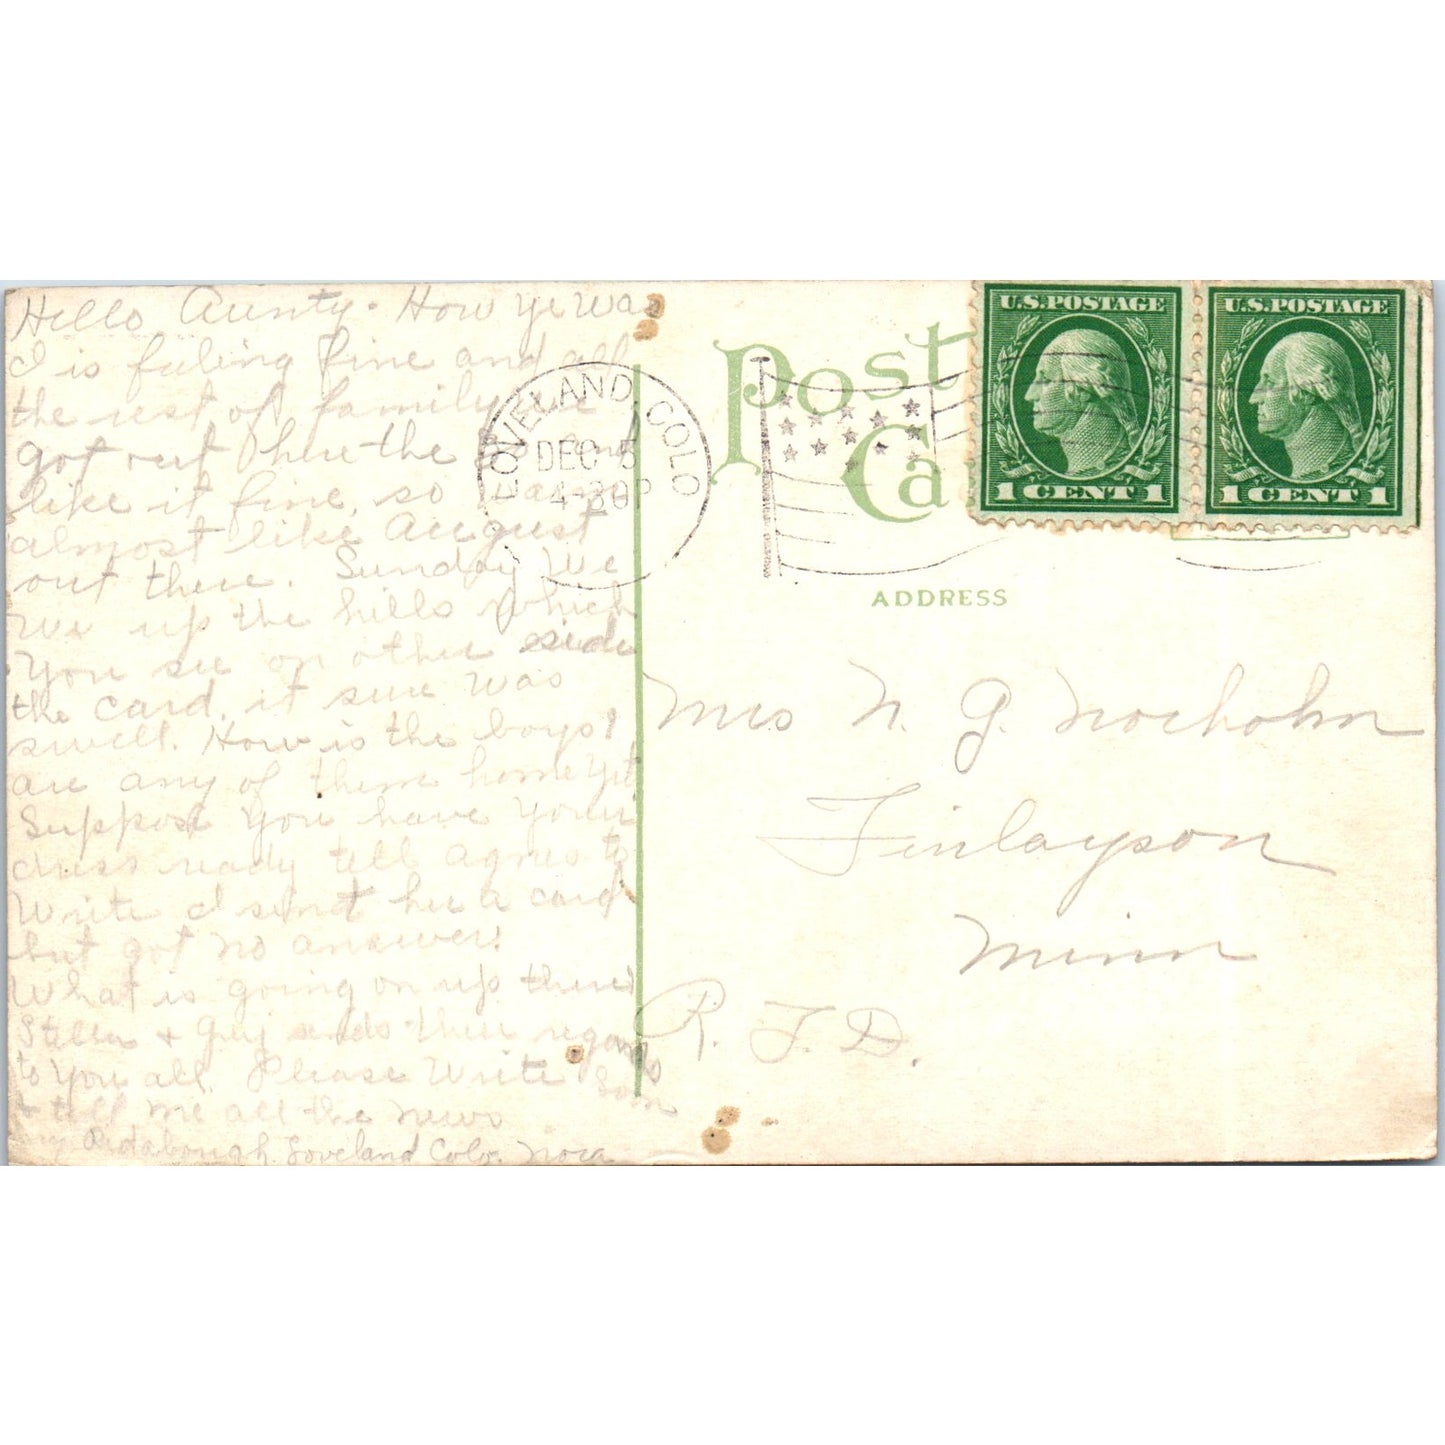 Hello Aunty. How ye was
I is fuling fine and all
the rest of family
got out here the
like it fine, so
almost like August
out there. Sunday We
up the hills which
You see on other side
the card. it sure was
swell. How is the boys?
are any of them home yet
Suppose You have Your
dress ready tell Agnes to
Write I sent her a card
but got no answer.
What is going on up there
Stella + Guy sends their regards
to You all. Please Write Soon
+ tell me all the news
Loveland Colo. Nora
LOVELAND, COLO
DEC 5
4-30P
Post
Ca
U.S. POSTAGE
1 CENT 1
U.S. POSTAGE
1 CENT 1
ADDRESS
Mrs N. G.
Finlayson
Minn
R. F. D.